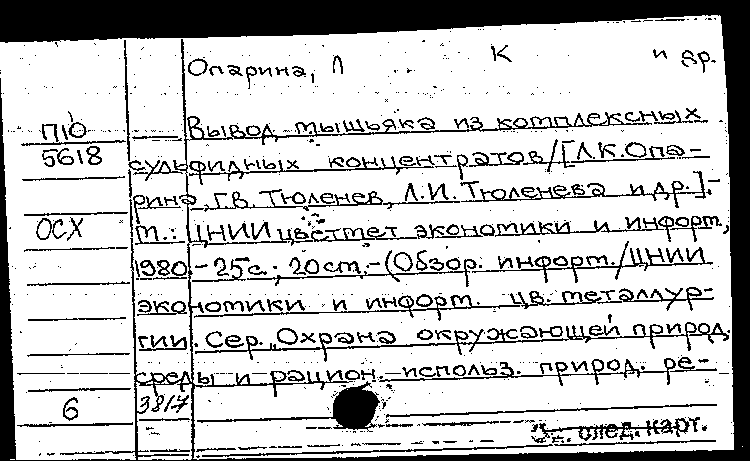 Опарина, Л К и др.
П10 Вывод мышьяка из комплексных
5618 сульфидных концентратов/[Л.К.Опа-
рина, Г.В. Тюленев, Л.И. Тюленева и др.].-
ОСХ М.: ЦНИИцветмет экономики и информ,
1980.-25с.; 20см.-(Обзор. информ./ЦНИИ
экономики и информ. цв. металлур-
гии. Сер. „Охрана окружающей природ.
среды и рацион. использ. природ. ре-
6 3817
См. след. карт.